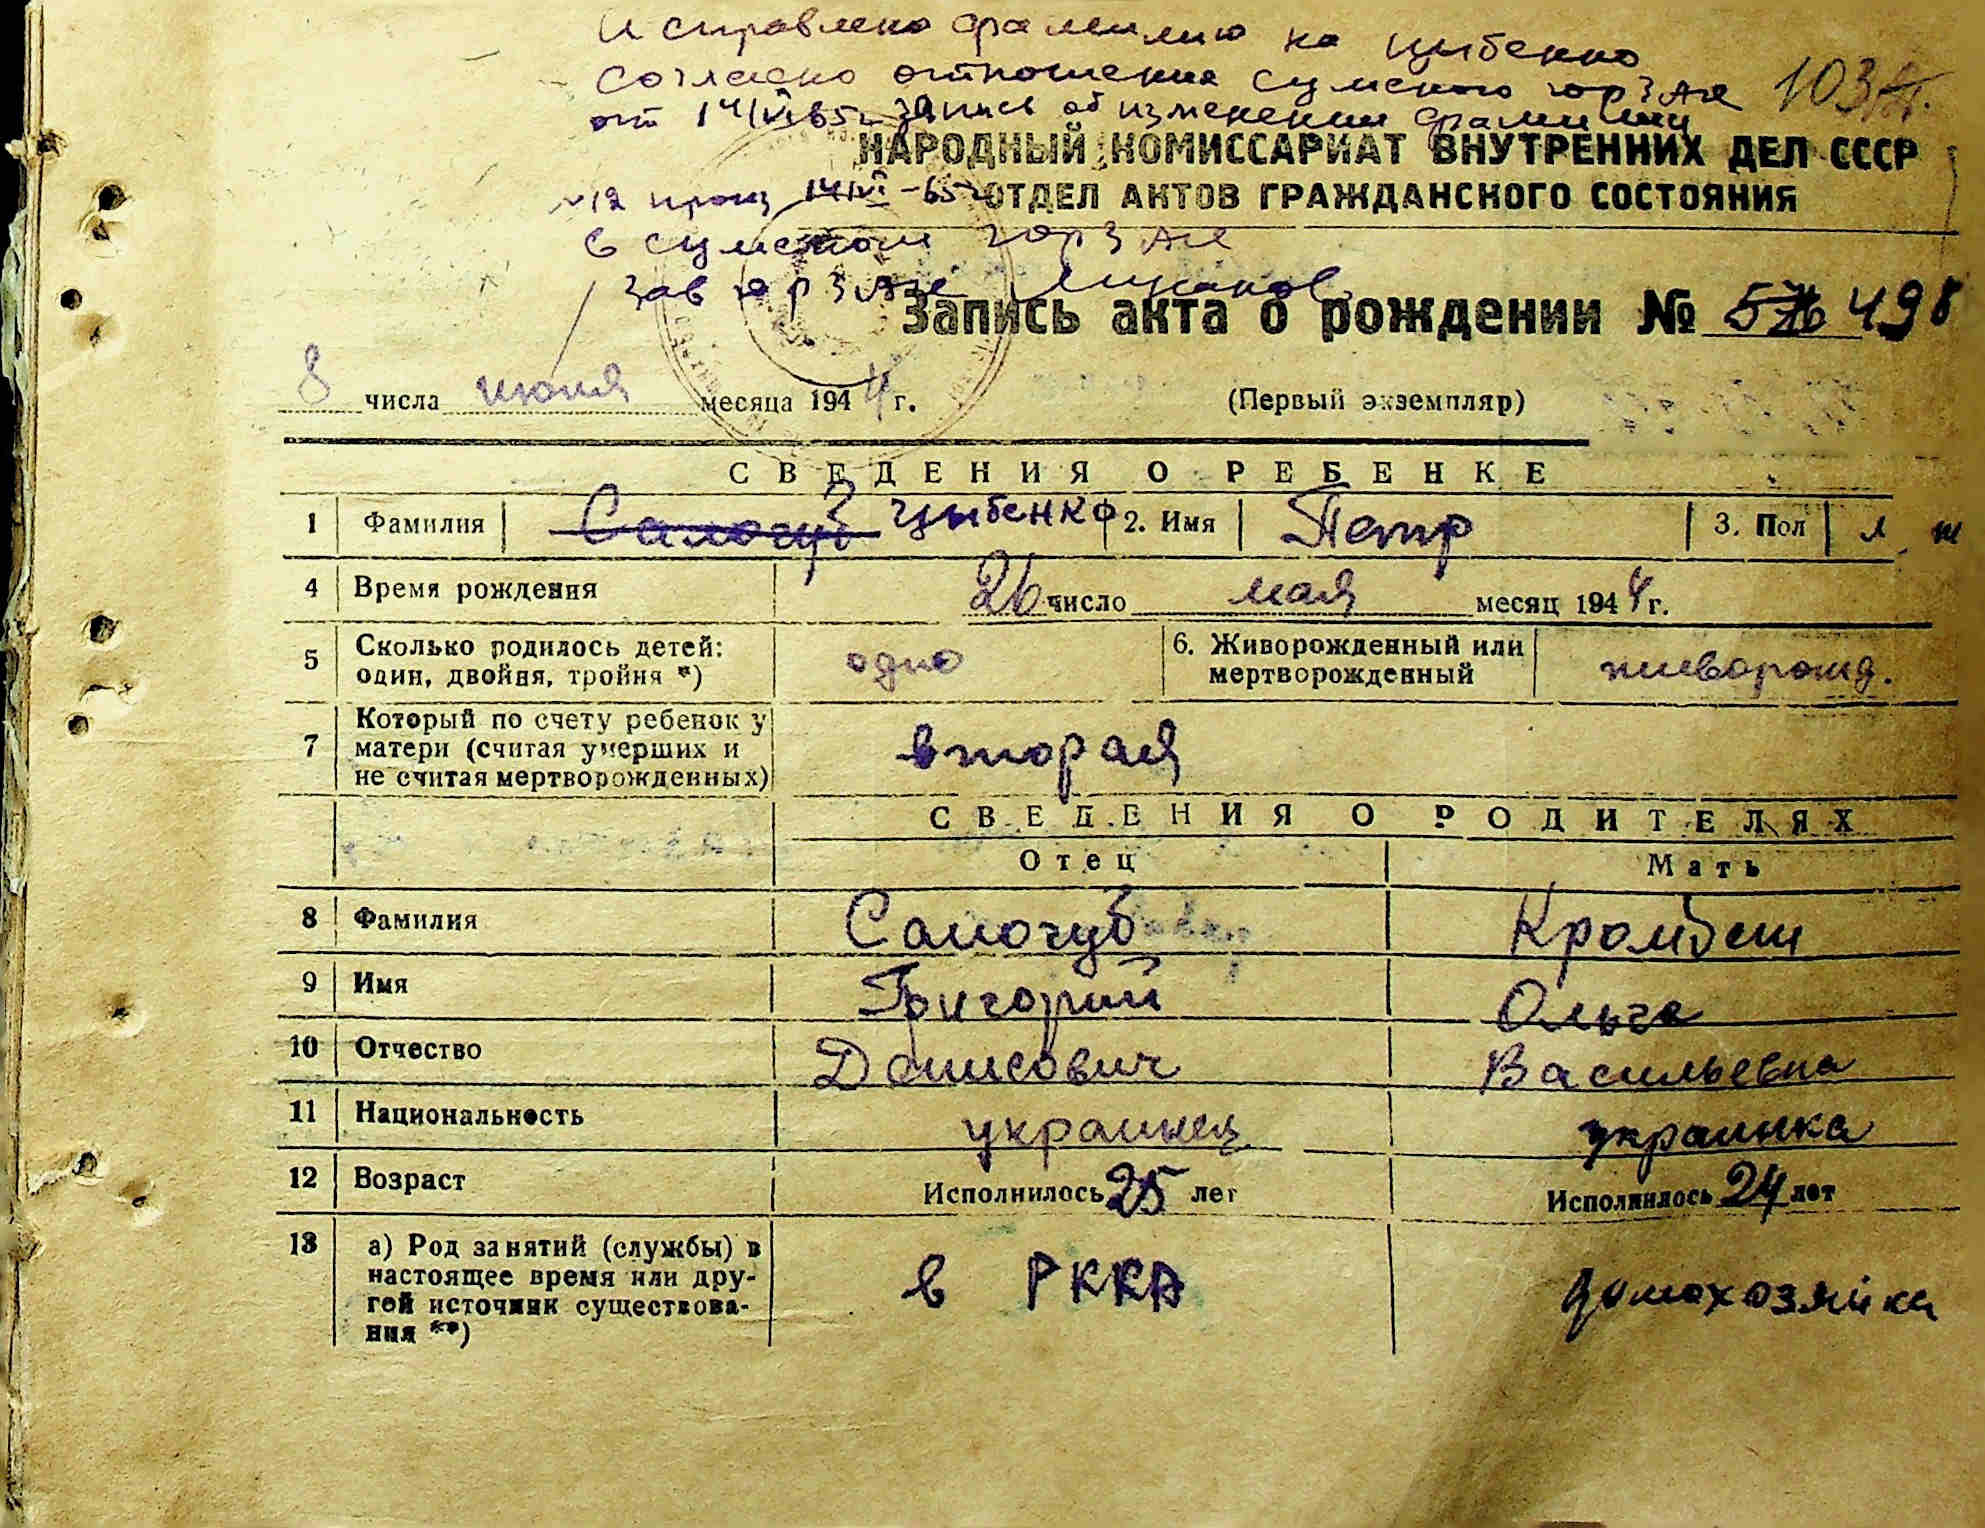 Исправлено фамилию на Цыбенко
согласно отношения Сумского горЗАГС
от 14/VI 65 г. запись об изменении фамилии
103
НАРОДНЫЙ КОМИССАРИАТ ВНУТРЕННИХ ДЕЛ СССР
№12 произ 14/VI-65 г. ОТДЕЛ АКТОВ ГРАЖДАНСКОГО СОСТОЯНИЯ
в Сумском горЗАГСе
Зав горЗАГС
Запись акта о рождении № 498
8 числа июня месяца 1944 г. (Первый экземпляр)
СВЕДЕНИЯ О РЕБЕНКЕ
1 Фамилия Самочуб Цыбенко 2. Имя Петр 3. Пол м
4 Время рождения 26 число мая месяц 1944 г.
5 Сколько родилось детей: один, двойня, тройня *) одно 6. Живорожденный или мертворожденный живорожд.
7 Который по счету ребенок у матери (считая умерших и не считая мертворожденных) вторая
СВЕДЕНИЯ О РОДИТЕЛЯХ
Отец Мать
8 Фамилия Самочуб Кромбет
9 Имя Григорий Ольга
10 Отчество Денисович Васильевна
11 Национальность украинец украинка
12 Возраст Исполнилось 25 лет Исполнилось 24 лет
13 а) Род занятий (службы) в настоящее время или другой источник существования **) в РККА домохозяйка